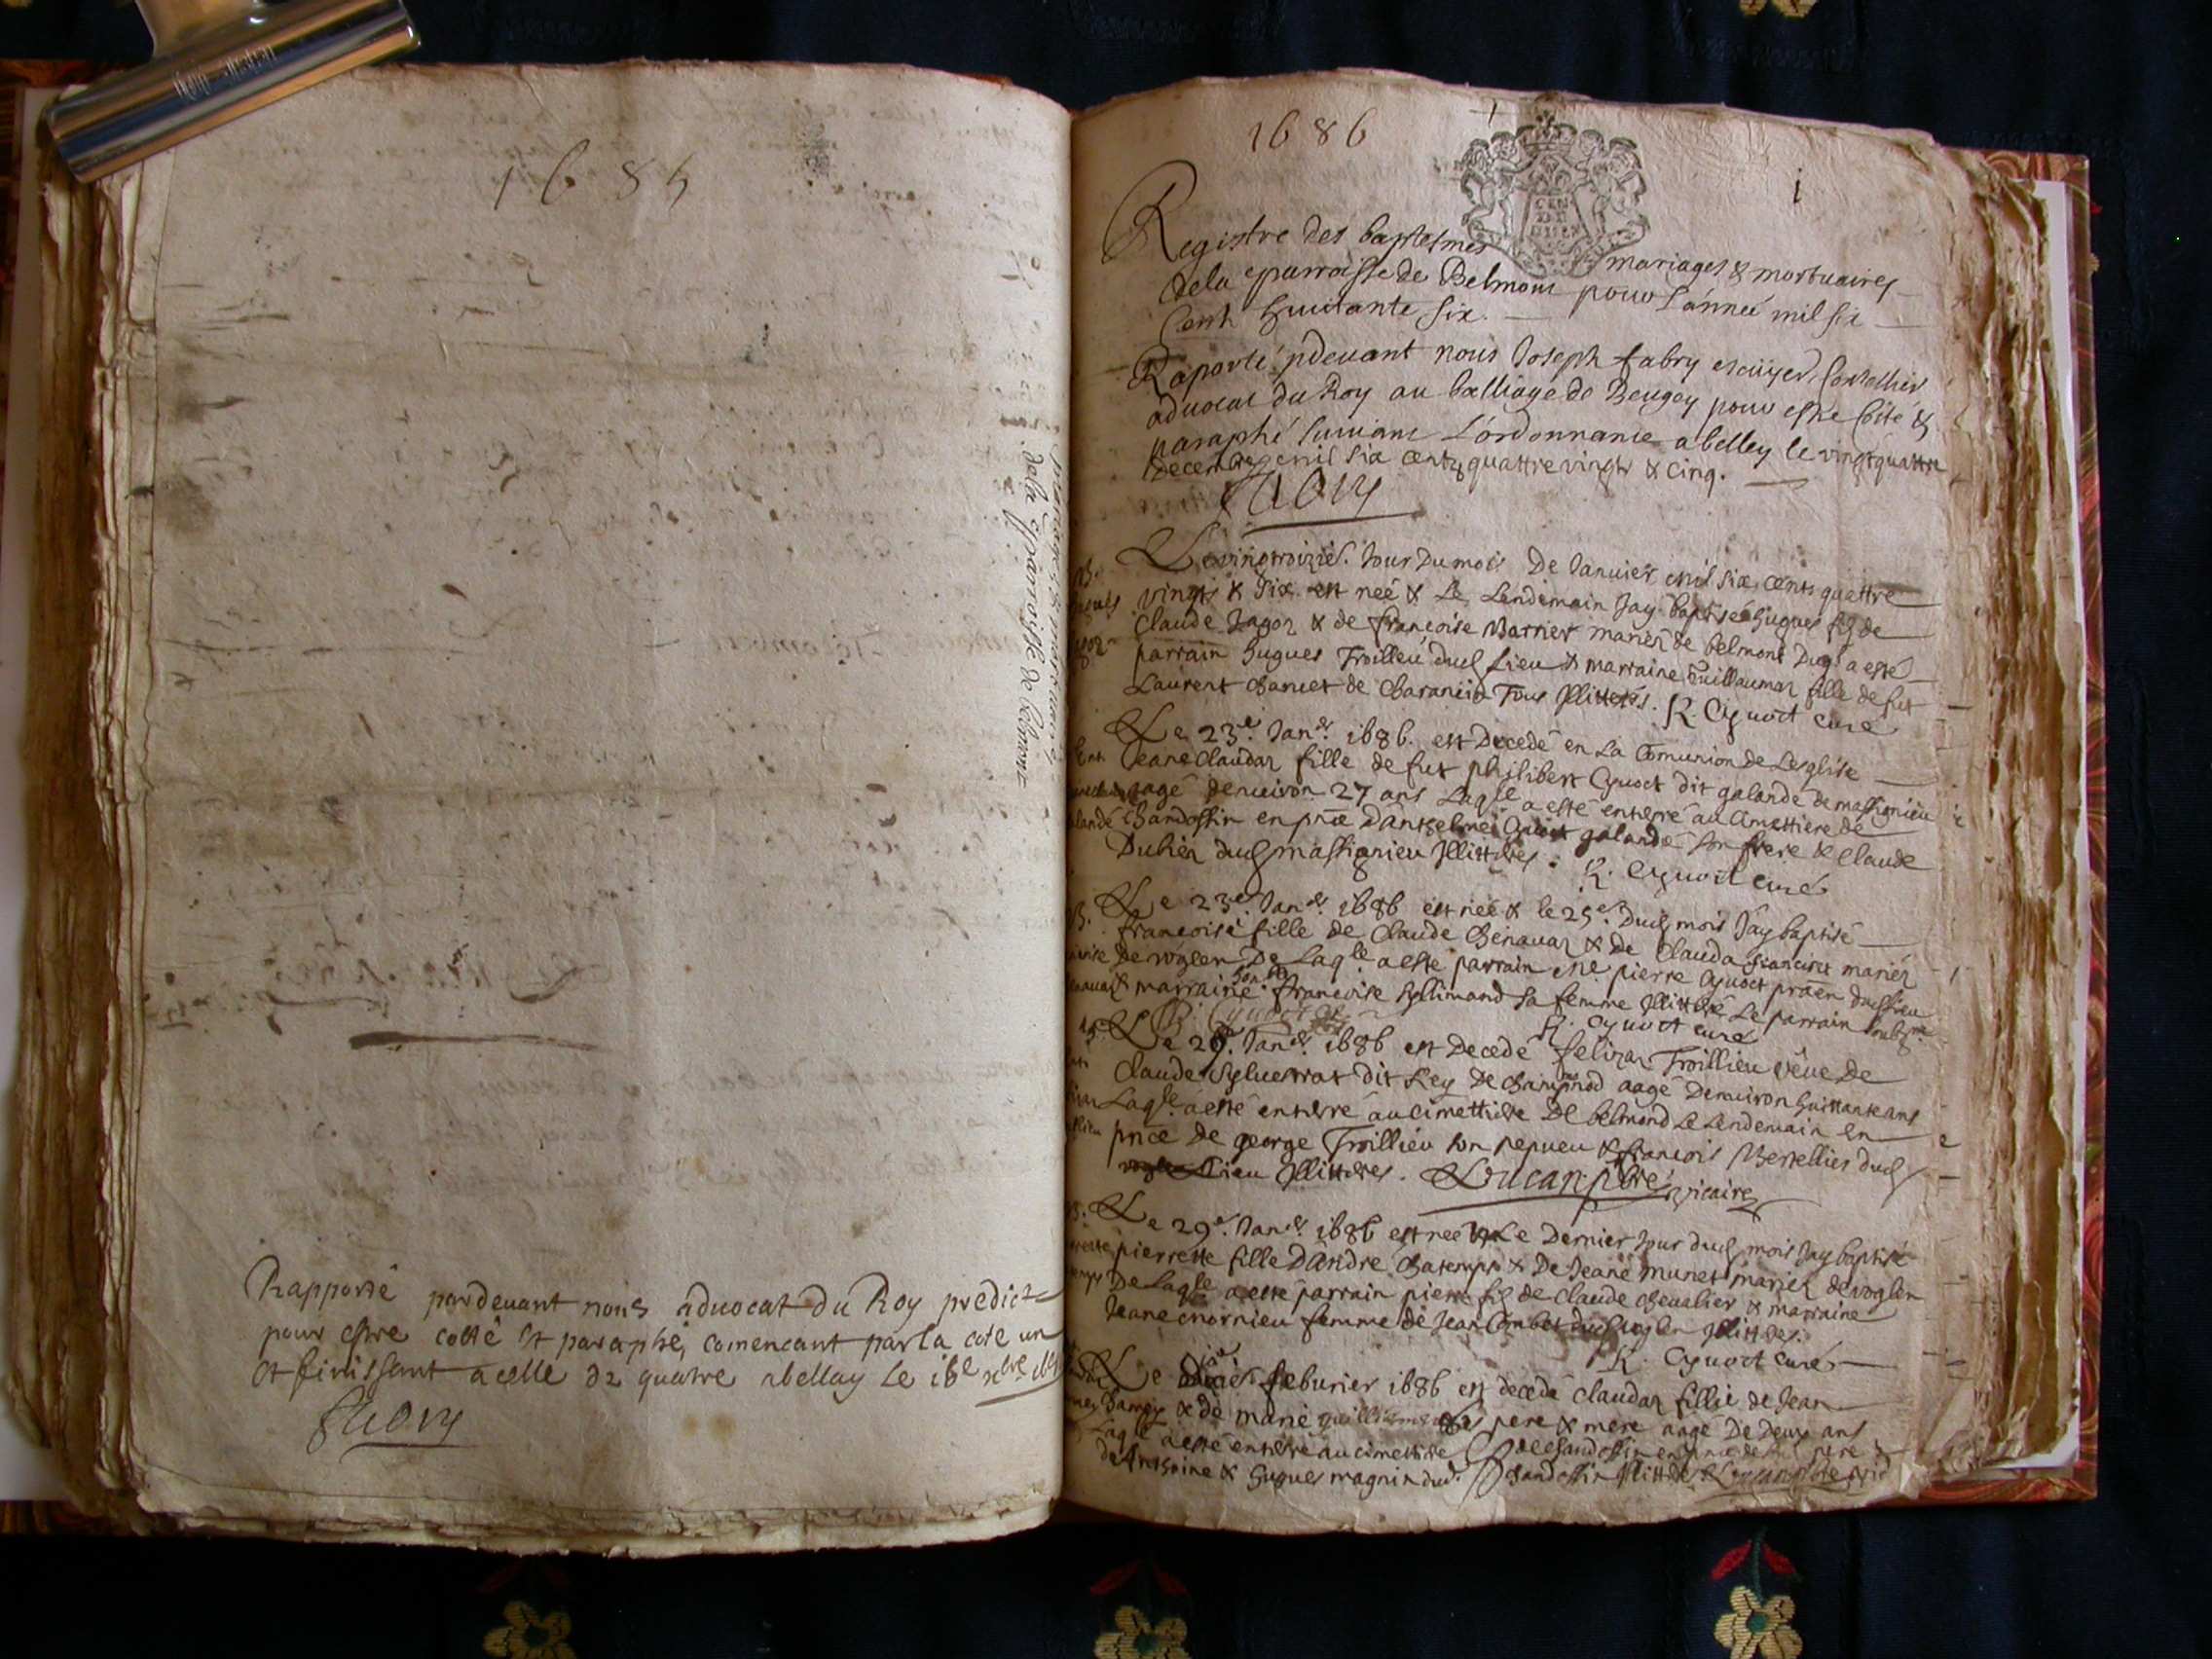 1685
Rapporté pardevant nous advocat du Roy predict
pour estre cotté et paraphé, comencant par la cote un
et finissant a celle de quatre a belley le 18e
Fabry
de la parroisse de belmont
1686
i
Registre des baptesmes mariages & mortuaires
de la parroisse de Belmont pour l'année mil six
cent huictante six.
Raporté pdevant nous Joseph fabry escuyer, Conseiller
advocat du Roy au balliage de Beugey pour estre Coté &
paraphé suivant L'ordonnance a belley le vingt quattre
decembre mil six centz quattre vingtz & cinq.
Fabry
Le vingtroizie. Jour du mois De Janvier mil six cents quattre
vingts & six est neé & Le Lendemain Jay baptisé hugues filz de
Claude Jagoz & de francoise Marrier mariez de belmont Duql a esté
parrain hugues Troillieu dud lieu & marraine Guillaumaz fille de fut
Laurent Charvet de Charancin Tous Illitterés. R. Cyvoct curé
Le 23e. Janer. 1686. est Decedé en La Comunion de Lesglise
Jeane Claudaz fille de fut philibert Cyvoct dit galande de massignieu
agé denviron 27 ans Laqle a esté enterré au Cimettiere de
Chandossin en pnce Danthelme Cyvoct galande son frere & Claude
Dubiez dud massignieu Illitteres. R. Cyvoct curé
B. Le 23e. Janer. 1686 est neé & le 25e. Dud mois Jay baptisé
francoise fille de Claude Chenavaz & de Clauda francoz mariez
De voglen De Laqle a esté parrain Me pierre Cyvoct praen dud lieu
& marraine hon.ble francoise Syllimand sa femme Illitteré Le parrain soubzne.
R. Cyvoct curé
Le 26e. Janer. 1686 est Decedé felizaz Troillieu vêve De
Claude Sylvestrat dit Rey De Champnod aagé Denviron huittante ans
Laqle a esté enterré au cimettiere De belmond Le Lendemain en
pnce De george Troillieu son nepveu & francois Berthellier dud
lieu Illitteres. Loucan pbre vicaire
Le 29e. Janer. 1686 est neé & Le Dernier Jour dud mois Jay baptisé
pierrette fille D'andre Chatemps & De Jeane munet mariez de voglen
De Laqle a esté parrain pierre filz de Claude Chevalier & marraine
Jeane mornieu femme de Jean Combet dud voglen Illitteres.
R. Cyvoct curé
Le feburier 1686 est decedé Claudaz fillie de Jean
& de marie pere & mere aagé De Deux ans
Laqle a esté enterré au cimettiere de Chandossin en pnce de son pere &
de Anthoine & hugues magnin dud. Chandossin Illitteres